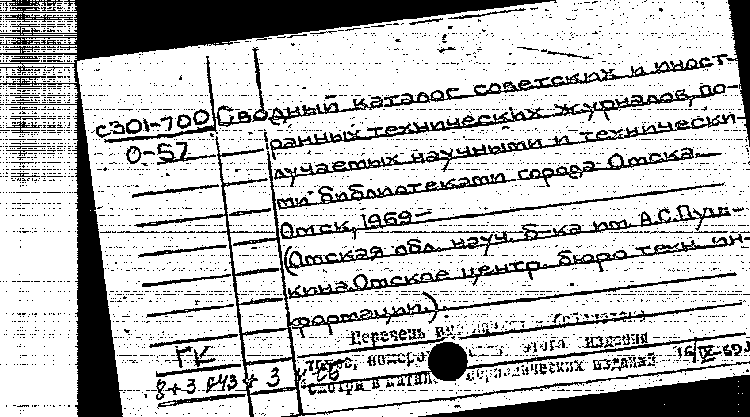 с301-700 Сводный каталог советских и иност-
0-57 ранных технических журналов, по-
лучаемых научными и технически-
ми библиотеками города Омска.
Омск, 1969-
(Омская обл. науч. б-ка им. А.С.Пуш-
кина. Омское центр. бюро техн. ин-
формации.).
Перечень
ГК номеров этого издания
8+3 смотри в периодических изданий 16/IV-69г